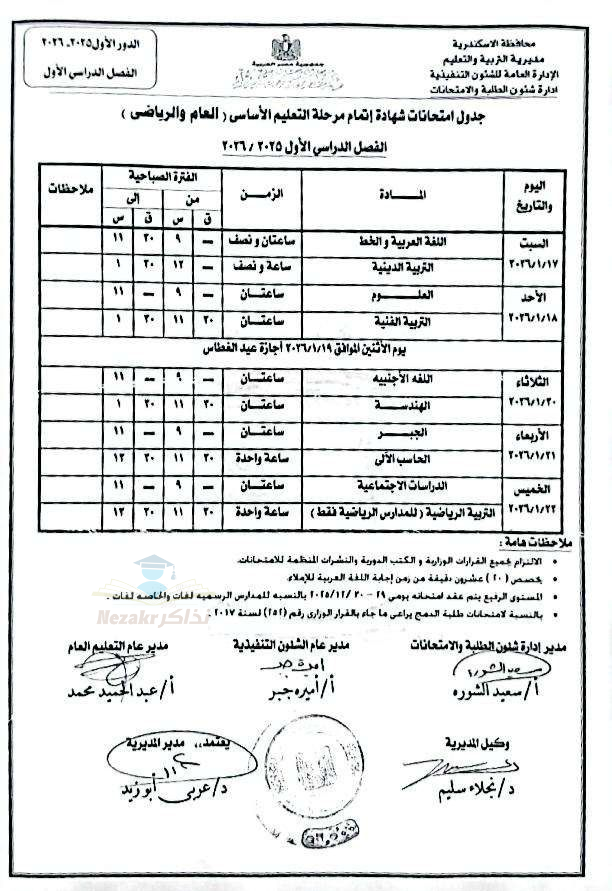 محافظة الاسكندرية
مديرية التربية والتعليم
الإدارة العامة للشئون التنفيذية
ادارة شئون الطلبة والامتحانات
جمهورية مصر العربية
الدور الأول ٢٠٢٥ـ ٢٠٢٦
الفصل الدراسي الأول
جدول امتحانات شهادة إتمام مرحلة التعليم الأساسى ( العام والرياضى )
الفصل الدراسي الأول ٢٠٢٥ / ٢٠٢٦
اليوم والتاريخ المــــادة الزمـن الفترة الصباحية ملاحظات
من إلى
ق س ق س
السبت ٢٠٢٦/١/١٧ اللغة العربية و الخط ساعتان و نصف ـــ ٩ ٣٠ ١١
التربية الدينية ساعة و نصف ـــ ١٢ ٣٠ ١
الأحد ٢٠٢٦/١/١٨ العلـــــوم ساعتــــان ـــ ٩ ـــ ١١
التربية الفنية ساعتــــان ٣٠ ١١ ٣٠ ١
يوم الأثنين الموافق ٢٠٢٦/١/١٩ أجازة عيد الغطاس
الثلاثاء ٢٠٢٦/١/٢٠ اللغه الأجنبيه ساعتــــان ـــ ٩ ـــ ١١
الهندســـة ساعتــــان ٣٠ ١١ ٣٠ ١
الأربعاء ٢٠٢٦/١/٢١ الجبـــر ساعتــــان ـــ ٩ ـــ ١١
الحاسب الألى ساعة واحدة ٣٠ ١١ ٣٠ ١٢
الخميس ٢٠٢٦/١/٢٢ الدراسات الاجتماعية ساعتــــان ـــ ٩ ـــ ١١
التربية الرياضية ( للمدارس الرياضية فقط ) ساعة واحدة ٣٠ ١١ ٣٠ ١٢
ملاحظات هامة :
• الالتزام بجميع القرارات الوزارية و الكتب الدورية والنشرات المنظمة للامتحانات.
• يخصص (٢٠) عشرون دقيقة من زمن إجابة اللغة العربية للإملاء.
• المستوى الرفيع يتم عقد امتحانه يومى ٢٩ - ٣٠ /٢٠٢٥/١٢ بالنسبه للمدارس الرسميه لغات والخاصه لغات .
• بالنسبة لامتحانات طلبة الدمج يراعى ما جاء بالقرار الوزارى رقم (٢٥٢) لسنة ٢٠١٧ .
نذاكر Nezakr
مدير إدارة شئون الطلبة والامتحانات مدير عام الشئون التنفيذية مدير عام التعليم العام
أ/ سعيد الشوره أ/ أميره جبر أ/ عبد الحميد محمد
وكيل المديرية يعتمد،، مدير المديرية
د/ نجلاء سليم د/ عربى أبو زيد